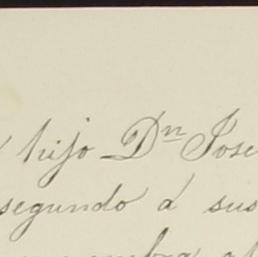 hijo Dn Jose
segundo á sus